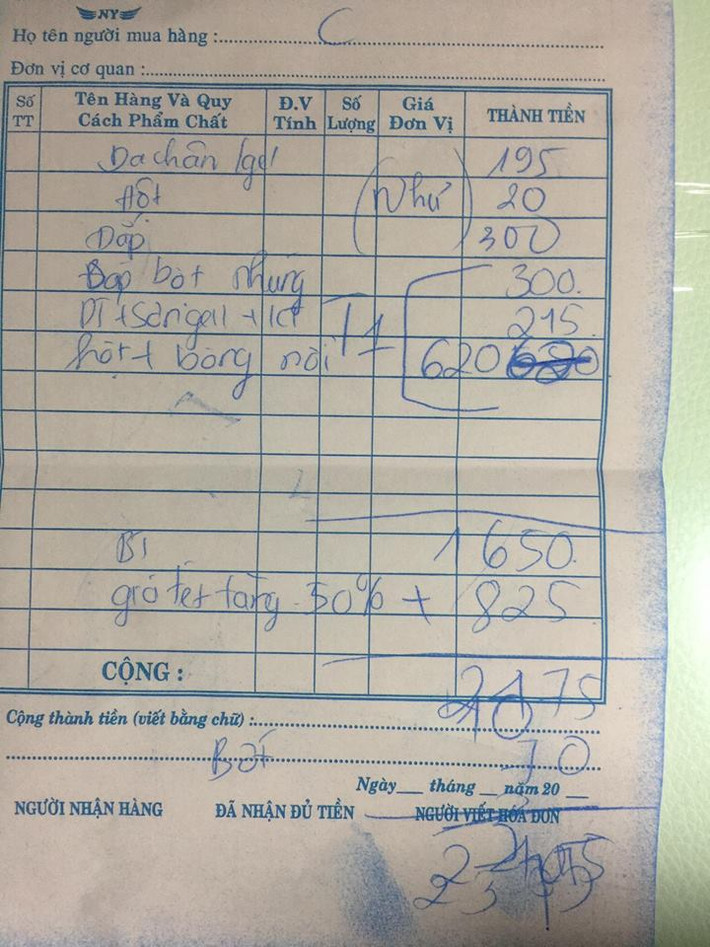 NY
Họ tên người mua hàng : C
Đơn vị cơ quan :
Số TT Tên Hàng Và Quy Cách Phẩm Chất Đ.V Tính Số Lượng Giá Đơn Vị THÀNH TIỀN
Da chân 195
Hốt 20
Đắp (Như) 300
Đắp bột nhúng 300.
215
T1
hớt bóng nói 620
1650.
giá tết tăng 50% + 825
CỘNG :
Cộng thành tiền (viết bằng chữ) :
Bớt 70
Ngày tháng năm 20
NGƯỜI NHẬN HÀNG ĐÃ NHẬN ĐỦ TIỀN NGƯỜI VIẾT HÓA ĐƠN